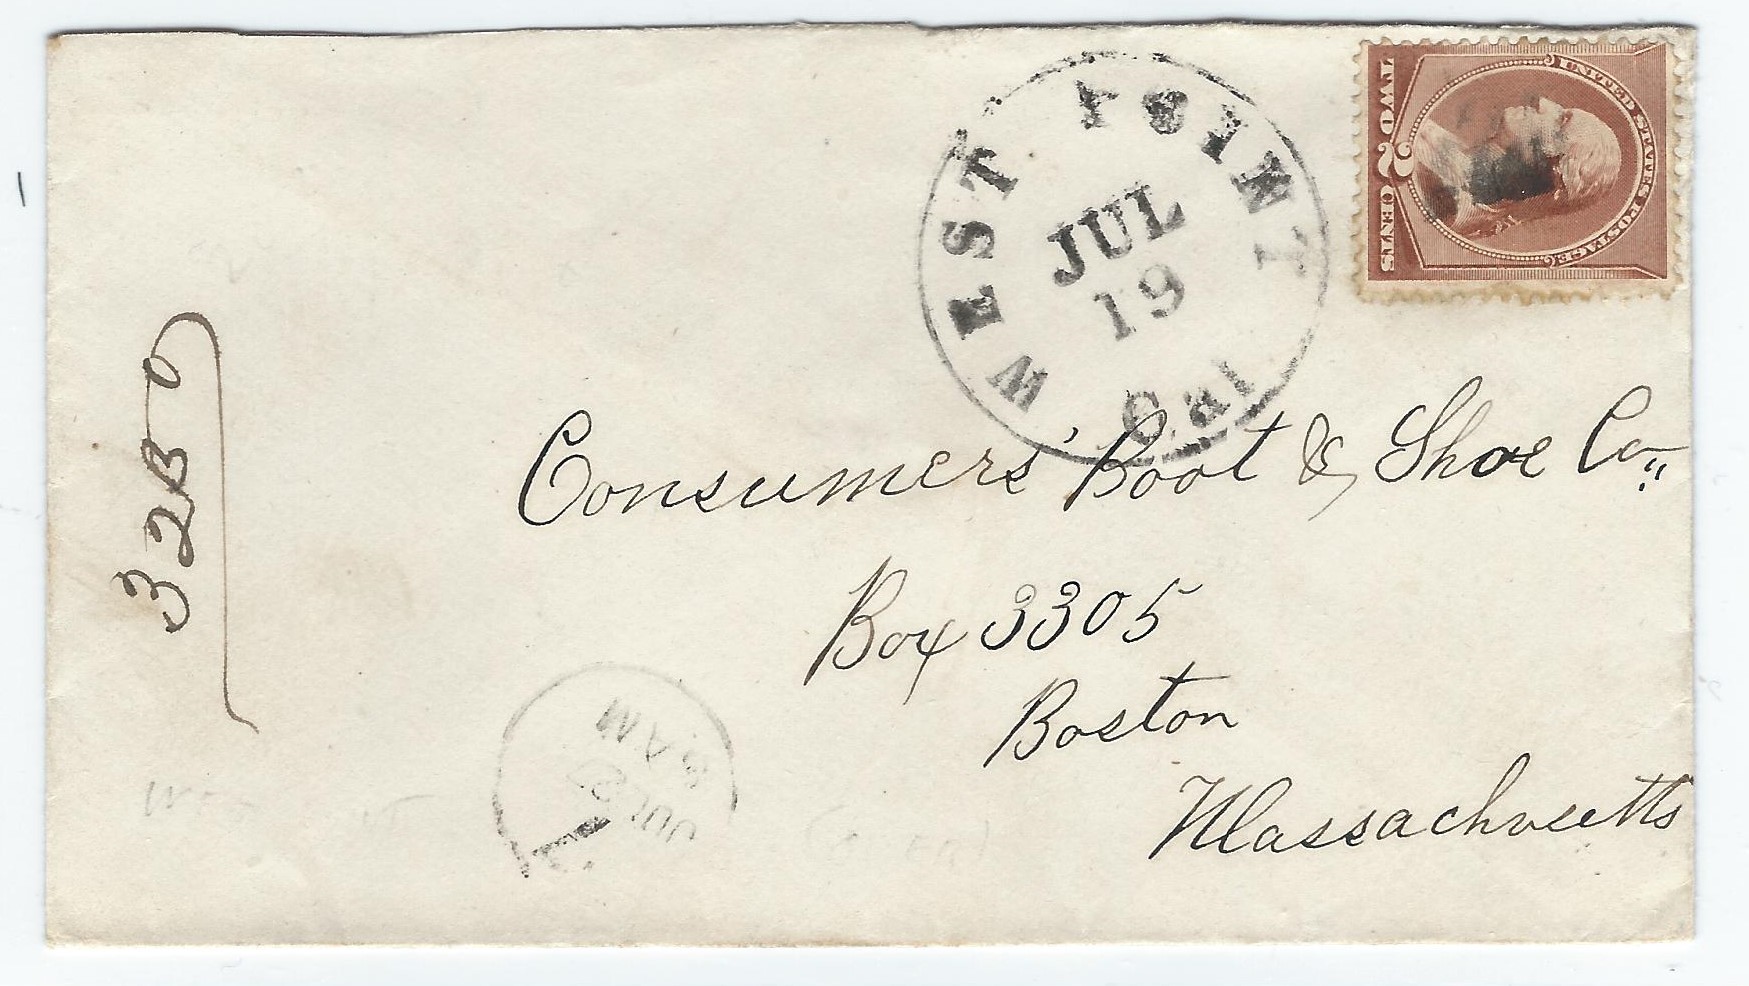 WEST POINT
JUL
19
Cal
UNITED STATES POSTAGE
TWO 2 CENTS
3280
Consumers' Boot & Shoe Co.,
Box 3305
Boston
Massachusetts
JUL 27
8 AM
1